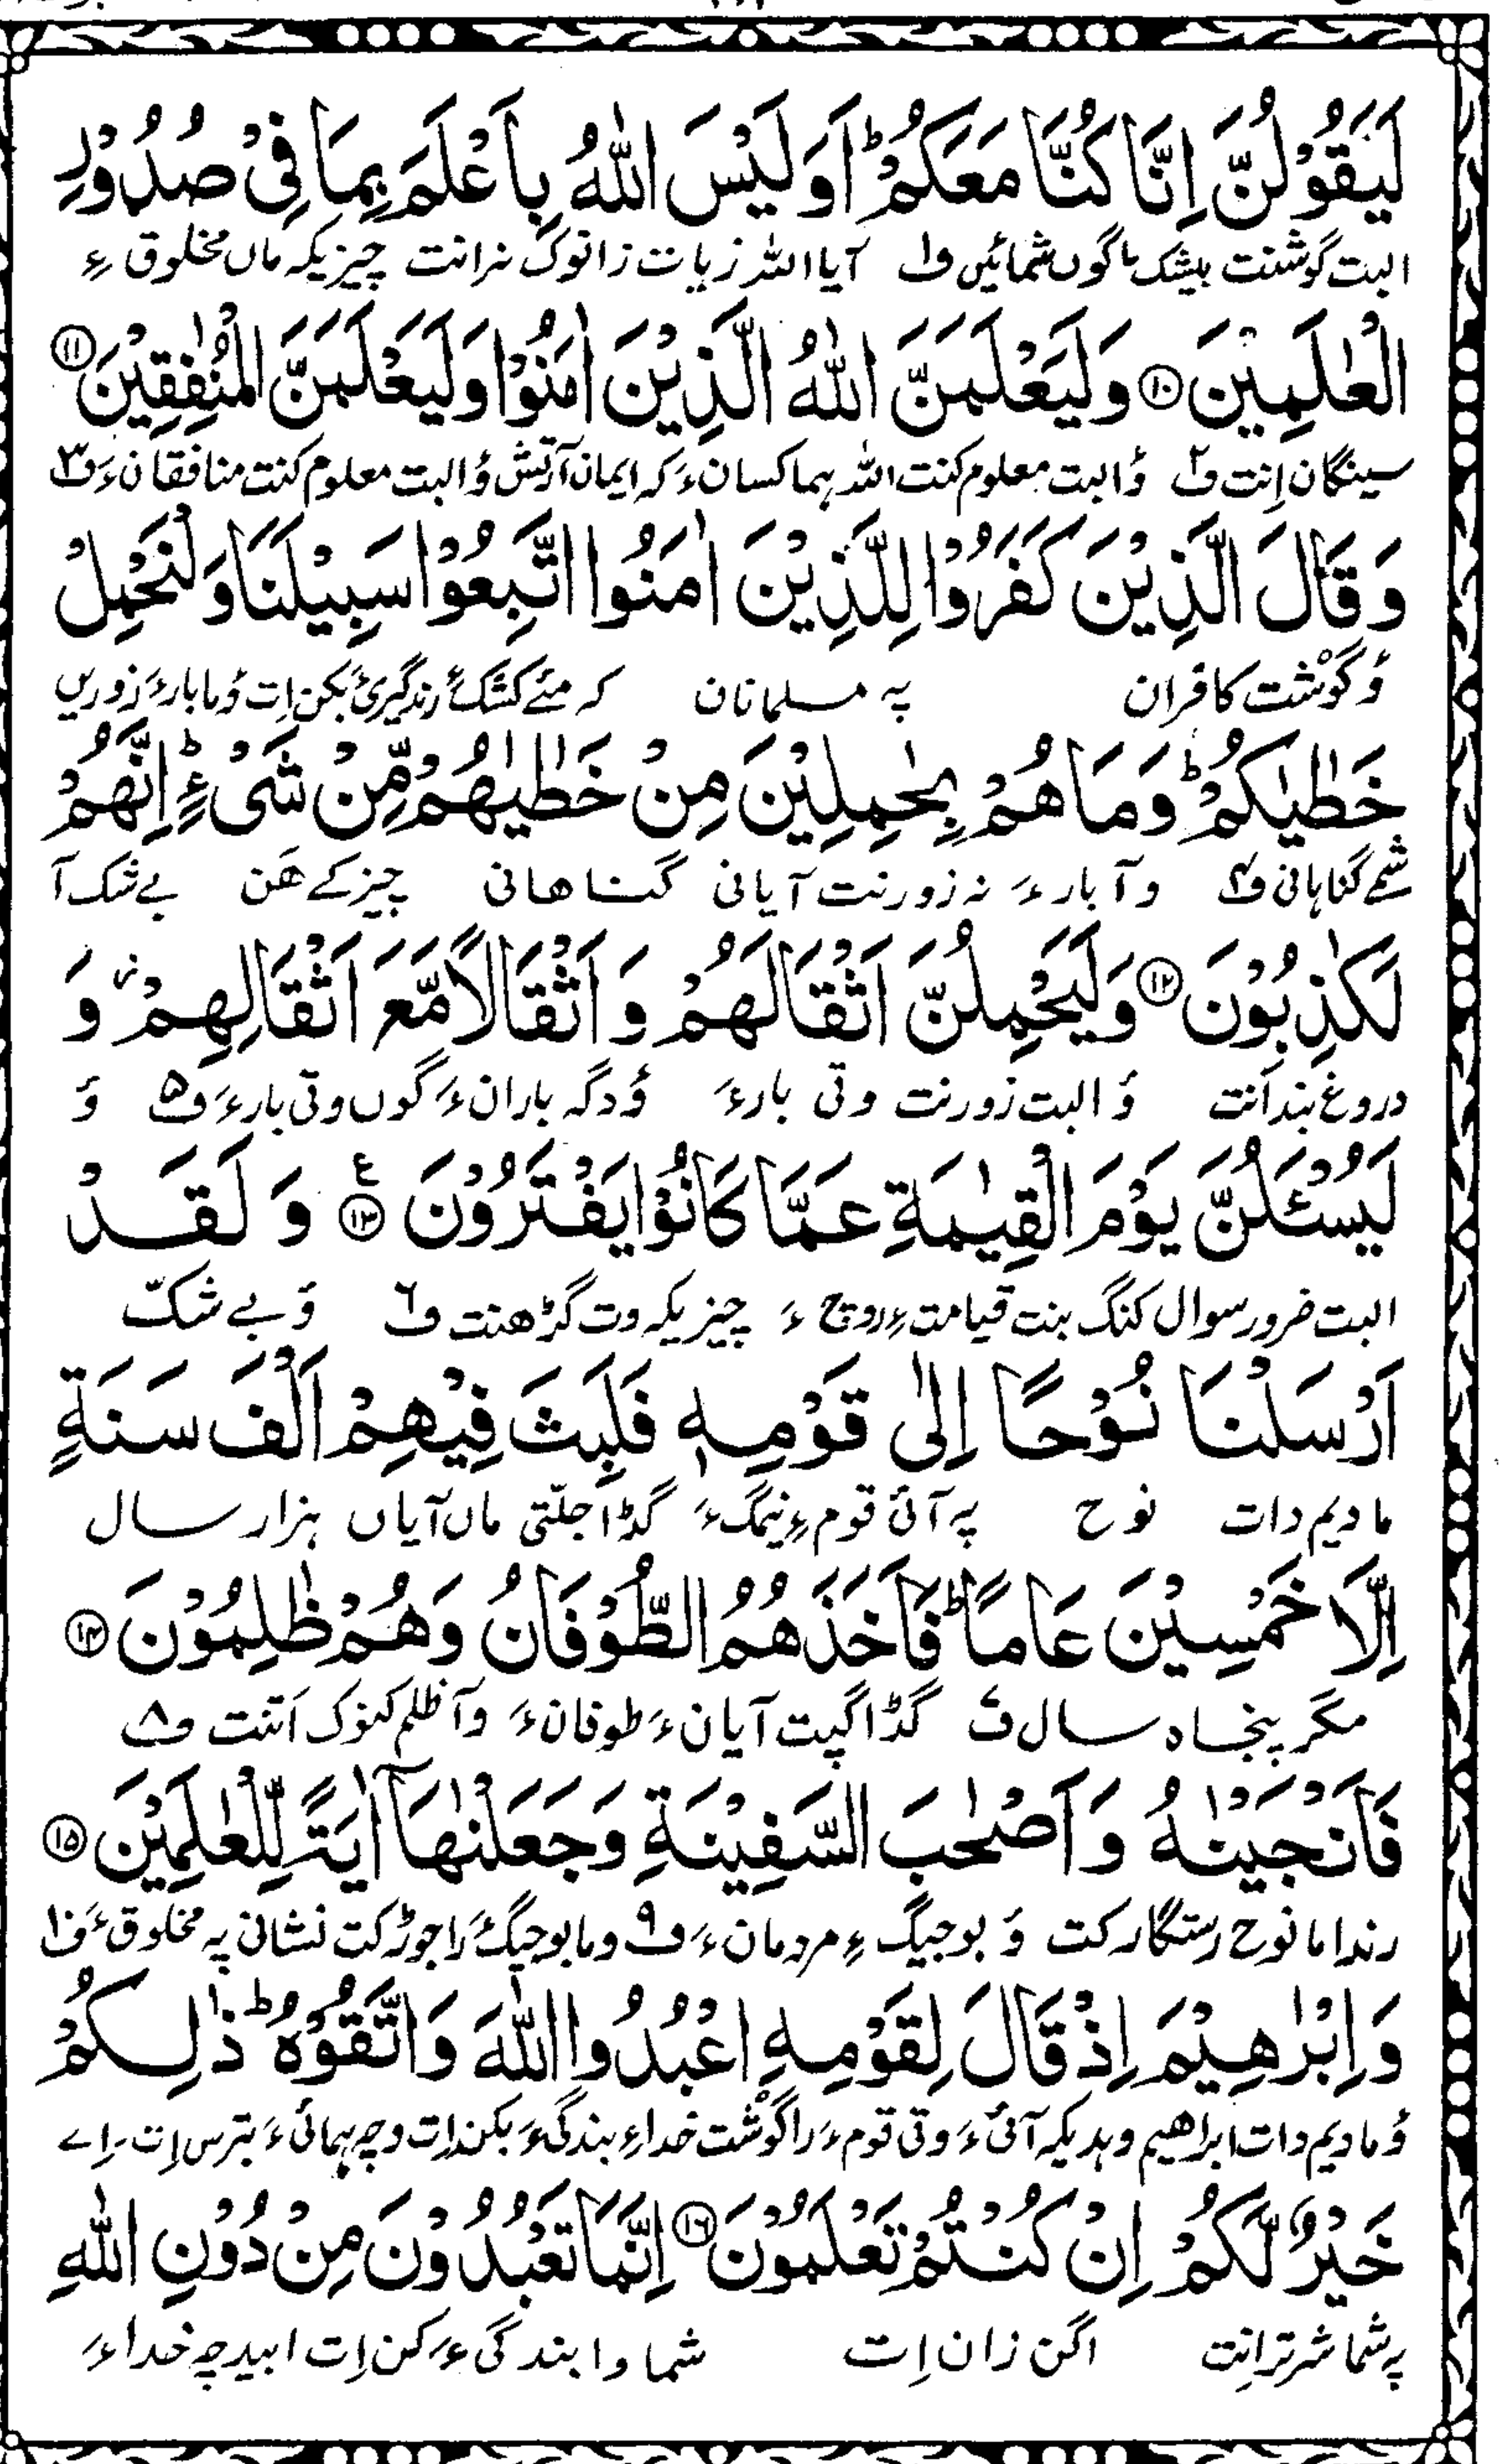 لَيَقُوْلُنَّ اِنَّا كُنَّا مَعَكُمْ ؕ اَوَلَيْسَ اللّٰهُ بِاَعْلَمَ بِمَا فِیْ صُدُوْرِ
البت گوشنت بیشک ما گوں شمائیں ف۱ آیا اللہ زیات زانوک نہ انت چیزیکہ ماں مخلوق ءِ
الْعٰلَمِيْنَ ⑩ وَلَيَعْلَمَنَّ اللّٰهُ الَّذِيْنَ اٰمَنُوْا وَلَيَعْلَمَنَّ الْمُنٰفِقِيْنَ ⑪
سینگان اِنت ف۲ ؤ البت معلوم کنت اللہ ہما کسان ءَ کہ ایمان آرتش ؤ البت معلوم کنت منافقان ءَ ف۳
وَ قَالَ الَّذِيْنَ كَفَرُوْا لِلَّذِيْنَ اٰمَنُوا اتَّبِعُوْا سَبِيْلَنَا وَلْنَحْمِلْ
ؤ گوْشت کافران پہ مسلمانان کہ مئے کشک ءِ رندگیریءَ بکن اِت ؤ ما بار ءَ زوریں
خَطٰيٰكُمْ ؕ وَمَا هُمْ بِحٰمِلِيْنَ مِنْ خَطٰيٰهُمْ مِّنْ شَیْءٍ ؕ اِنَّهُمْ
شمے گناہانی ف۴ و آ بار ءَ نہ زورنت آیانی گناھانی چیزکے ھَن بے شک آ
لَكٰذِبُوْنَ ⑫ وَلَيَحْمِلُنَّ اَثْقَالَهُمْ وَ اَثْقَالًا مَّعَ اَثْقَالِهِمْ ز وَ
دروغ بند اَنت ؤ البت زورنت وتی بار ءَ ؤ دگہ باران ءَ گوں وتی بار ءَ ف۵ ؤ
لَيُسْئَلُنَّ يَوْمَ الْقِيٰمَةِ عَمَّا كَانُوْا يَفْتَرُوْنَ ⑬ ع وَ لَقَدْ
البت ضرور سوال کنگ بنت قیامت ءِ روچ ءَ چیزیکہ وت گڑھنت ف۶ ؤ بے شکّ
اَرْسَلْنَا نُوْحًا اِلٰی قَوْمِهٖ فَلَبِثَ فِيْهِمْ اَلْفَ سَنَةٍ
ما دیم دات نوح پہ آئی قوم ءِ نیمگ ءَ گڈا جلّتی ماں آیاں ہزار سال
اِلَّا خَمْسِيْنَ عَامًا ؕ فَاَخَذَهُمُ الطُّوْفَانُ وَهُمْ ظٰلِمُوْنَ ⑭
مگر پنجاہ سال ف۷ گڈا گپت آیان ءَ طوفان ءَ و آ ظلم کنوک اَتنت ف۸
فَاَنْجَيْنٰهُ وَ اَصْحٰبَ السَّفِيْنَةِ وَ جَعَلْنٰهَاۤ اٰيَةً لِّلْعٰلَمِيْنَ ⑮
رندا ما نوح رستگار کت ؤ بوجیگ ءِ مردمان ءَ ف۹ و ما بوجیگ ءَ را جوڑ کت نشانی پہ مخلوق ءَ ف۱۰
وَ اِبْرٰهِيْمَ اِذْ قَالَ لِقَوْمِهِ اعْبُدُوا اللّٰهَ وَ اتَّقُوْهُ ؕ ذٰلِكُمْ
ؤ ما دیم دات ابراھیم وہدیکہ آئی ءَ وتی قوم ءَ را گوْشت خدا ءِ بندگی ءَ بکن اِت و چہ ہمائی ءَ بترس اِت
خَيْرٌ لَّكُمْ اِنْ كُنْتُمْ تَعْلَمُوْنَ ⑯ اِنَّمَا تَعْبُدُوْنَ مِنْ دُوْنِ اللّٰهِ
پہ شما شر تر اِنت اگن زان اِت شما وا بندگی ءَ کن اِت ابید چہ خدا ءَ